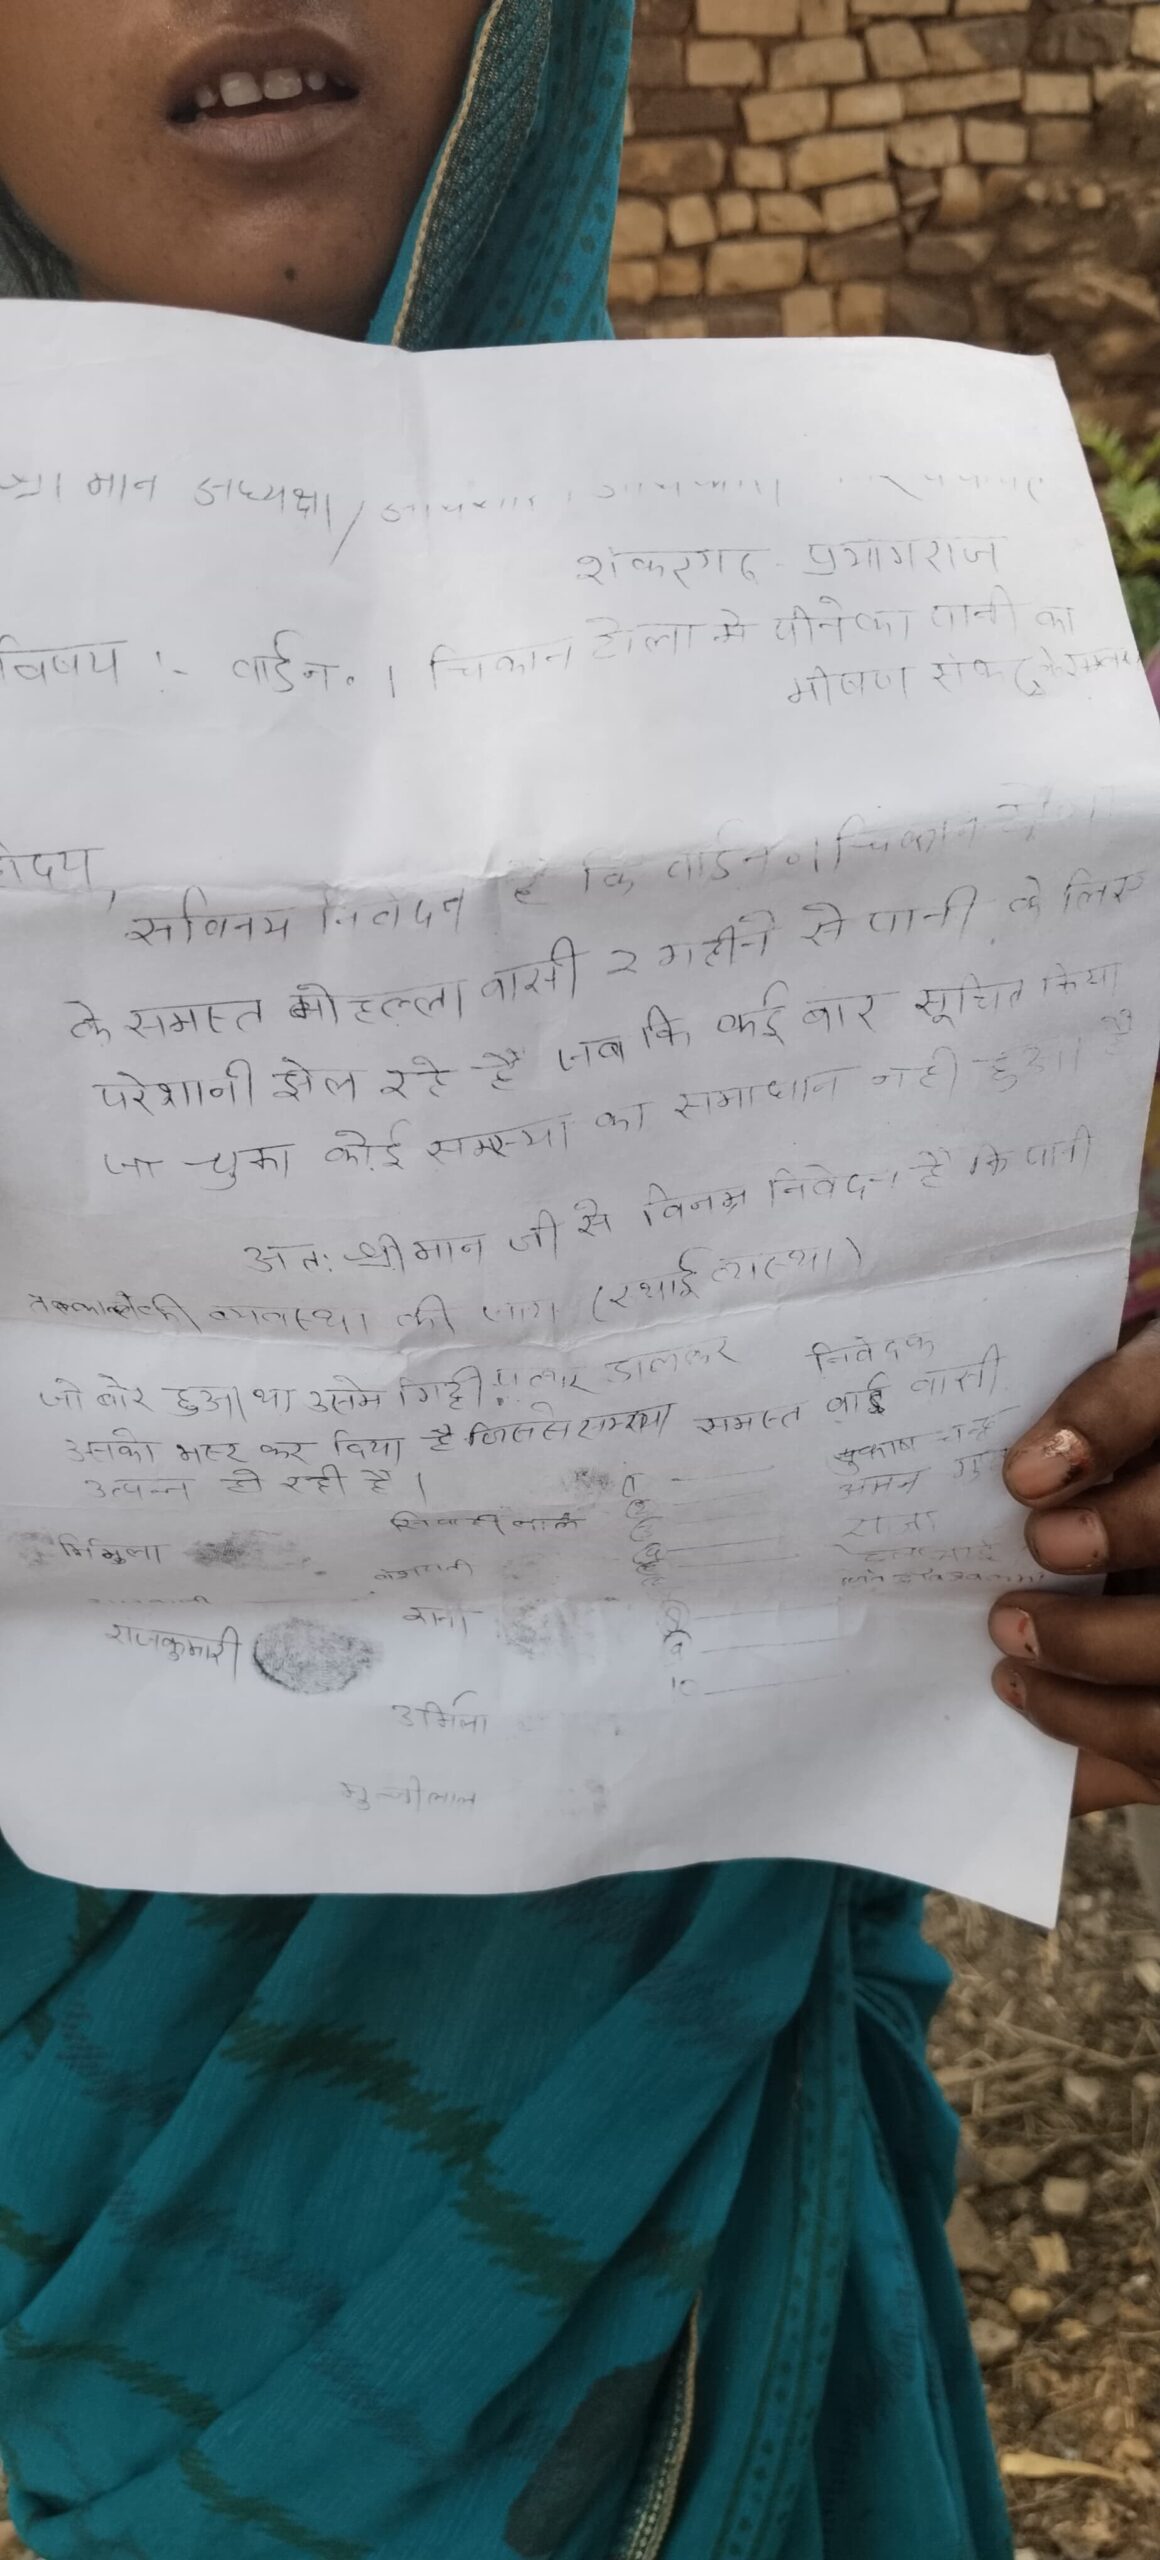 श्री मान अध्यक्ष/
शंकरगढ़ - प्रयागराज
विषय :- वार्ड नं० 1 चिकान टोला मे पीने का पानी का
भीषण संकट के
होदय,
सविनय निवेदन है कि वार्ड नं० 1 चिकान टोला
के समस्त मोहल्ला वासी 2 महीने से पानी के लिए
परेशानी झेल रहे है जब कि कई बार सूचित किया
जा चुका कोई समस्या का समाधान नही हुआ है
अतः श्री मान जी से विनम्र निवेदन है कि पानी
की व्यवस्था की जाय (स्थाई व्यस्था)
जो बोर हुआ था उसमे गिट्टी पत्थर डालकर
उसको भस्ट कर दिया है जिससे समस्या
उत्पन्न हो रही है।
निवेदक
समस्त वार्ड वासी
अमन
राजा
निर्मला
राजकुमारी
उर्मिला
मुन्नीलाल